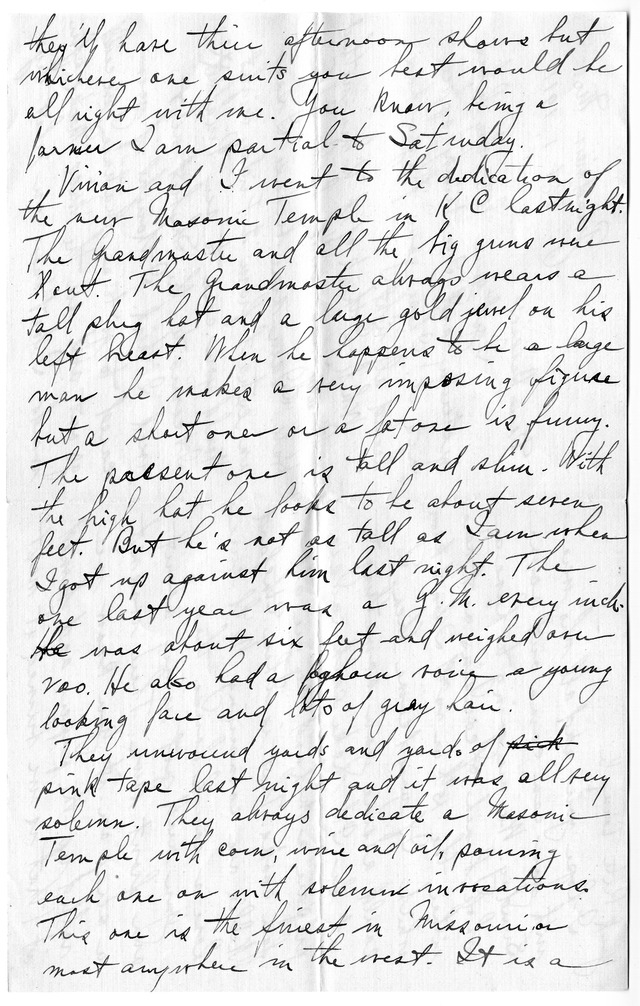 they'll have their afternoon shows but
whichever one suits you best would be
all right with me. You know, being a
farmer I am partial to Saturday.
Vivian and I went to the dedication of
the new Masonic Temple in K C last night.
The Grandmaster and all the big guns were
there. The Grandmaster always wears a
tall plug hat and a large gold jewel on his
left breast. When he happens to be a large
man he makes a very imposing figure
but a short one or a fat one is funny.
The present one is tall and slim. With
the high hat he looks to be about seven
feet. But he's not as tall as I am when
I got up against him last night. The
one last year was a G.M. every inch.
He was about six feet and weighed over
200. He also had a foghorn voice a young
looking face and lots of gray hair.
They unwound yards and yards of pick
pink tape last night and it was all very
solemn. They always dedicate a Masonic
Temple with corn, wine and oil, pouring
each one on with solemn invocations.
This one is the finest in Missouri or
most anywhere in the west. It is a